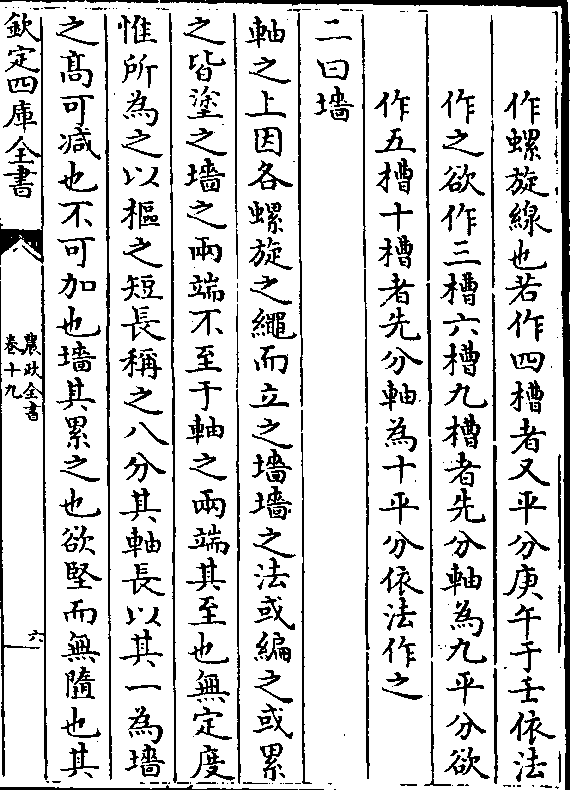 作螺旋線也若作四槽者又平分庚午于壬依法
作之欲作三槽六槽九槽者先分軸為九平分欲
作五槽十槽者先分軸為十平分依法作之
二曰墻
軸之上因各螺旋之繩而立之墻墻之法或編之或累
之皆塗之墻之兩端不至于軸之兩端其至也無定度
惟所為之以樞之短長稱之八分其軸長以其一為墻
之髙可减也不可加也墻其累之也欲堅而無隨也其
欽定四庫全書
農政全書
卷十九
六